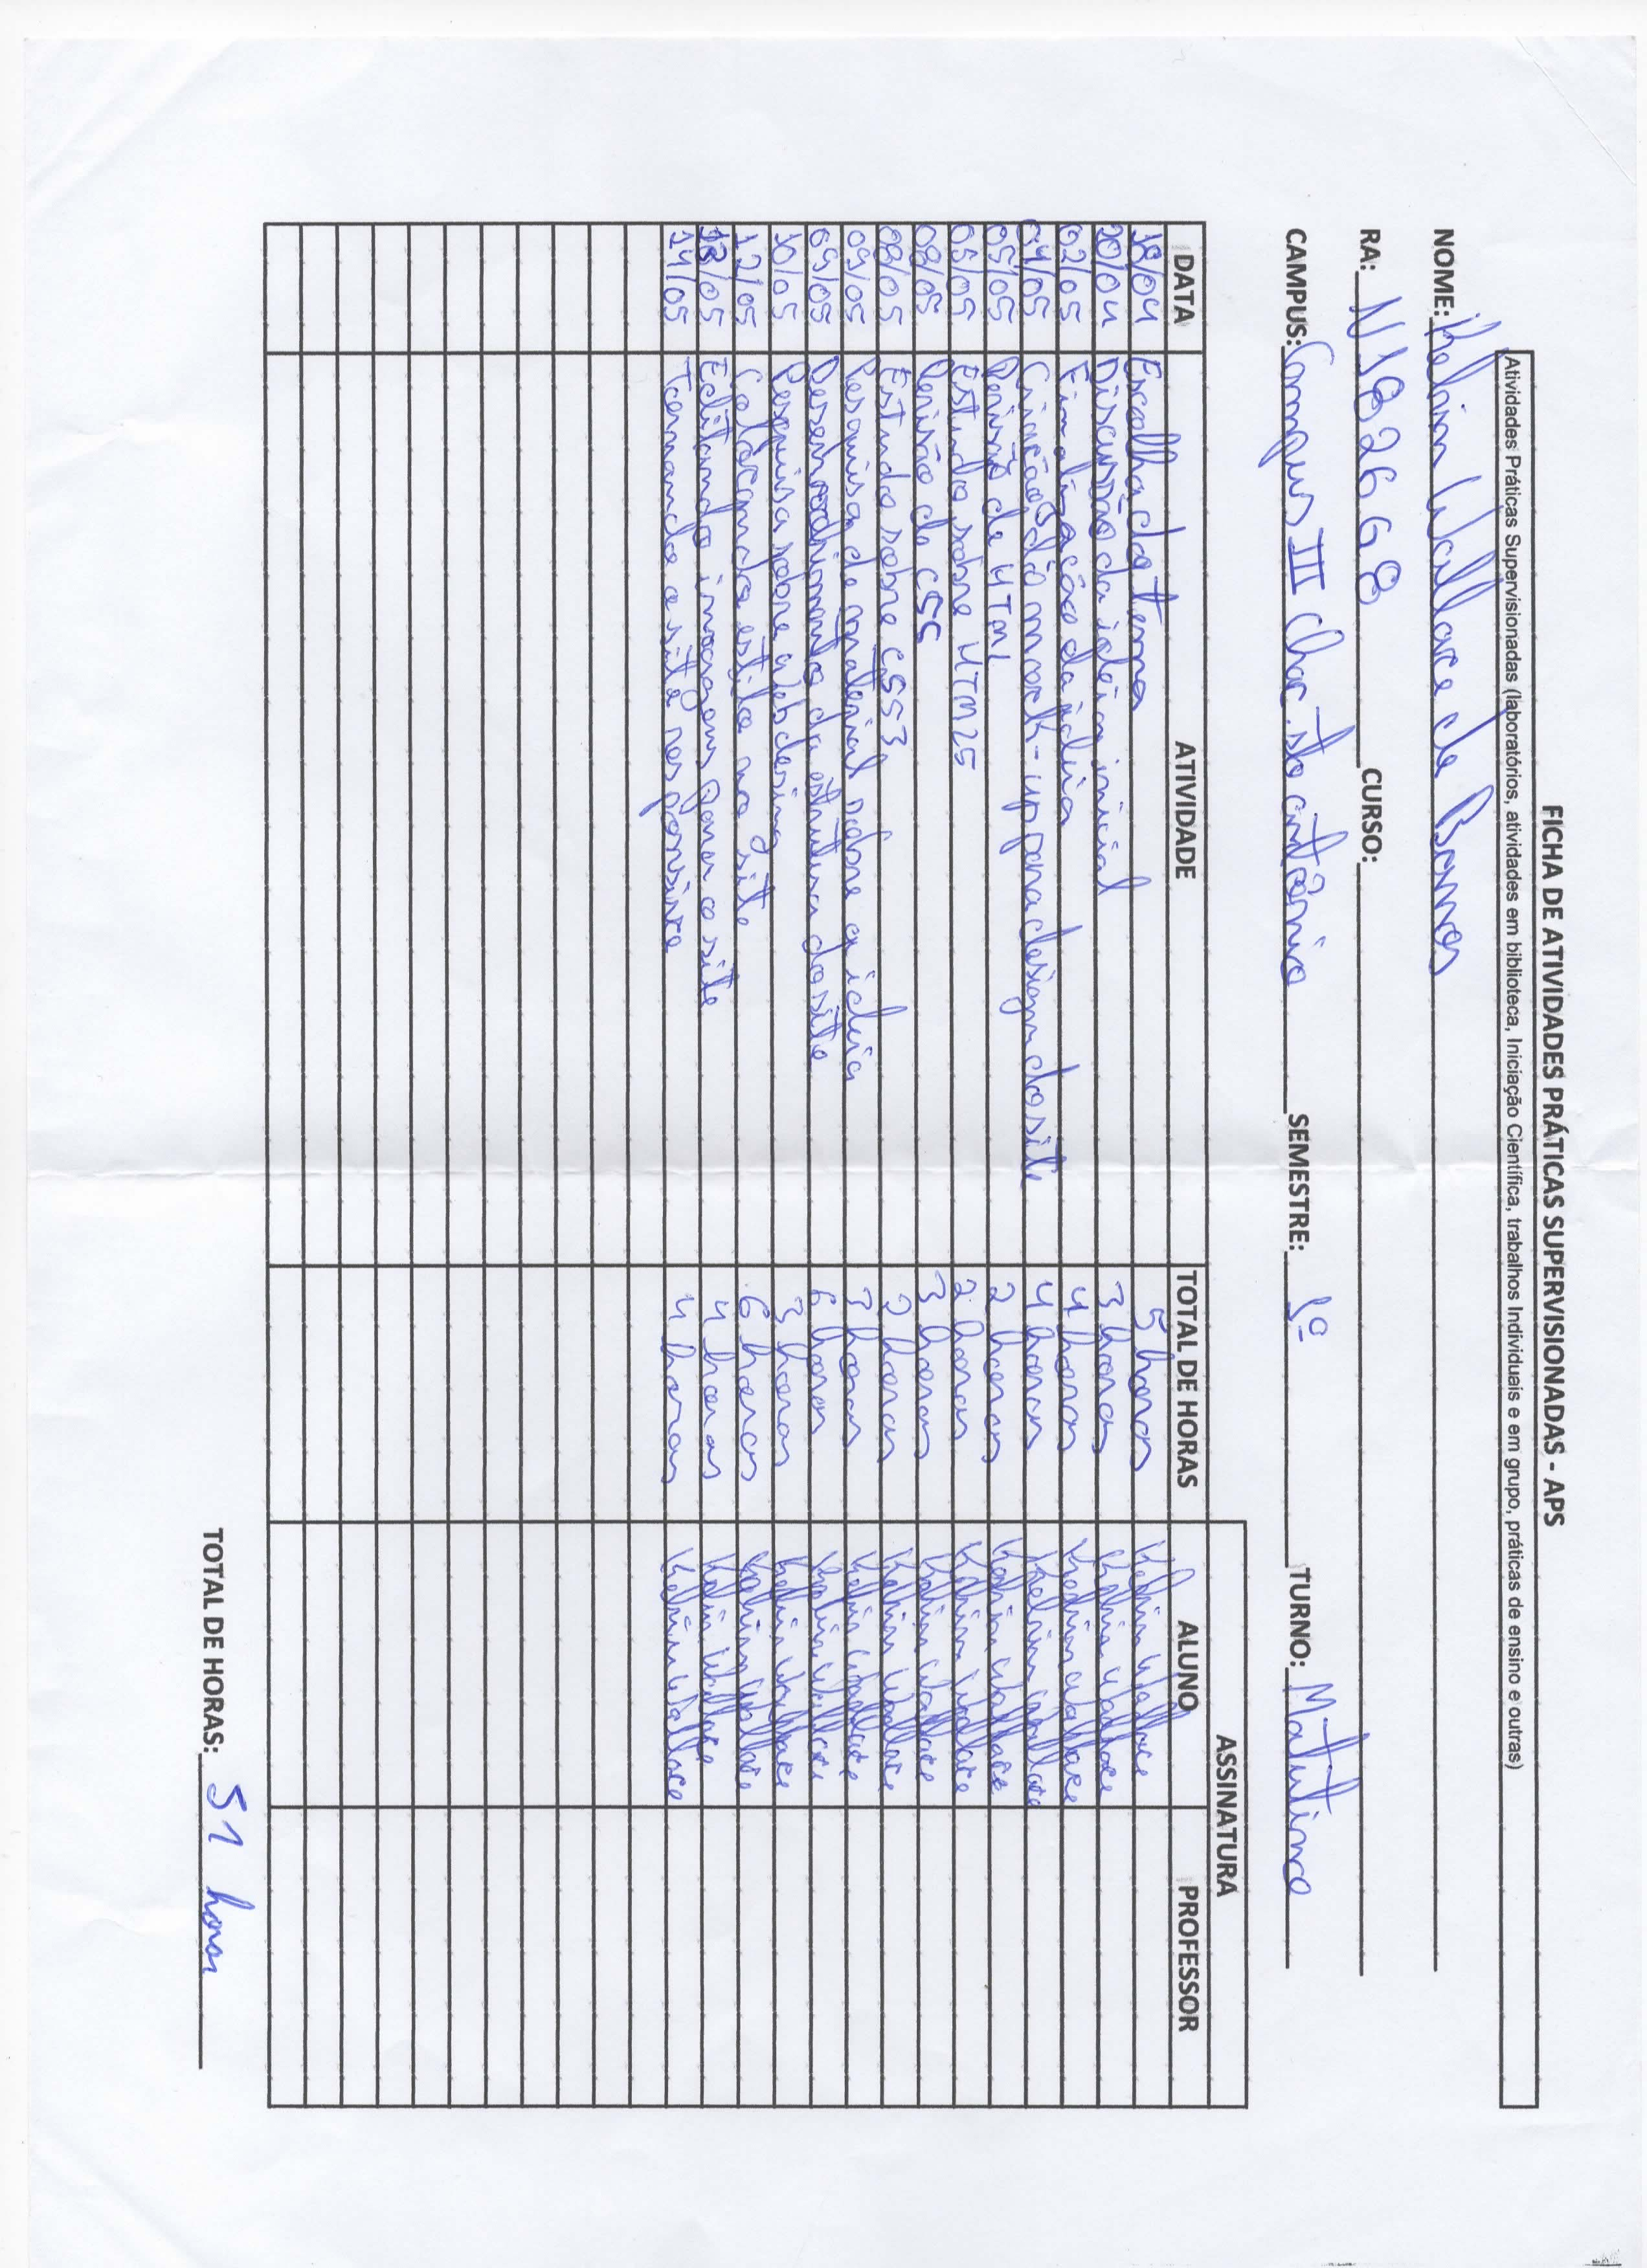 FICHA DE ATIVIDADES PRÁTICAS SUPERVISIONADAS - APS
Atividades Práticas Supervisionadas (laboratórios, atividades em biblioteca, Iniciação Científica, trabalhos Individuais e em grupo, práticas de ensino e outras)
NOME: Kelvin Wallace de Barros
RA: N182668 CURSO:
CAMPUS: Campus III Chac. sto antônio SEMESTRE: 1º TURNO: Matutino
ASSINATURA
DATA ATIVIDADE TOTAL DE HORAS ALUNO PROFESSOR
18/04 Escolha do Tema 5 horas Kelvin Wallace
20/04 Discussão da idéia inicial 3 horas Kelvin Wallace
02/05 Finalização da idéia 4 horas Kelvin Wallace
04/05 Criação do mock-up para design do site 4 horas Kelvin Wallace
05/05 Revisão de HTML 2 horas Kelvin Wallace
05/05 Estudo sobre HTML5 2 horas Kelvin Wallace
08/05 Revisão de CSS 3 horas Kelvin Wallace
08/05 Estudo sobre CSS3 2 horas Kelvin Wallace
09/05 Pesquisa de material sobre a ideia 3 horas Kelvin Wallace
09/05 Desenvolvimento da estrutura do site 6 horas Kelvin Wallace
10/05 Pesquisa sobre web desing 3 horas Kelvin Wallace
12/05 Colocando estilo no site 6 horas Kelvin Wallace
13/05 Editando imagens para o site 4 horas Kelvin Wallace
14/05 Tornando o site responsivo 4 horas Kelvin Wallace
TOTAL DE HORAS: 51 horas